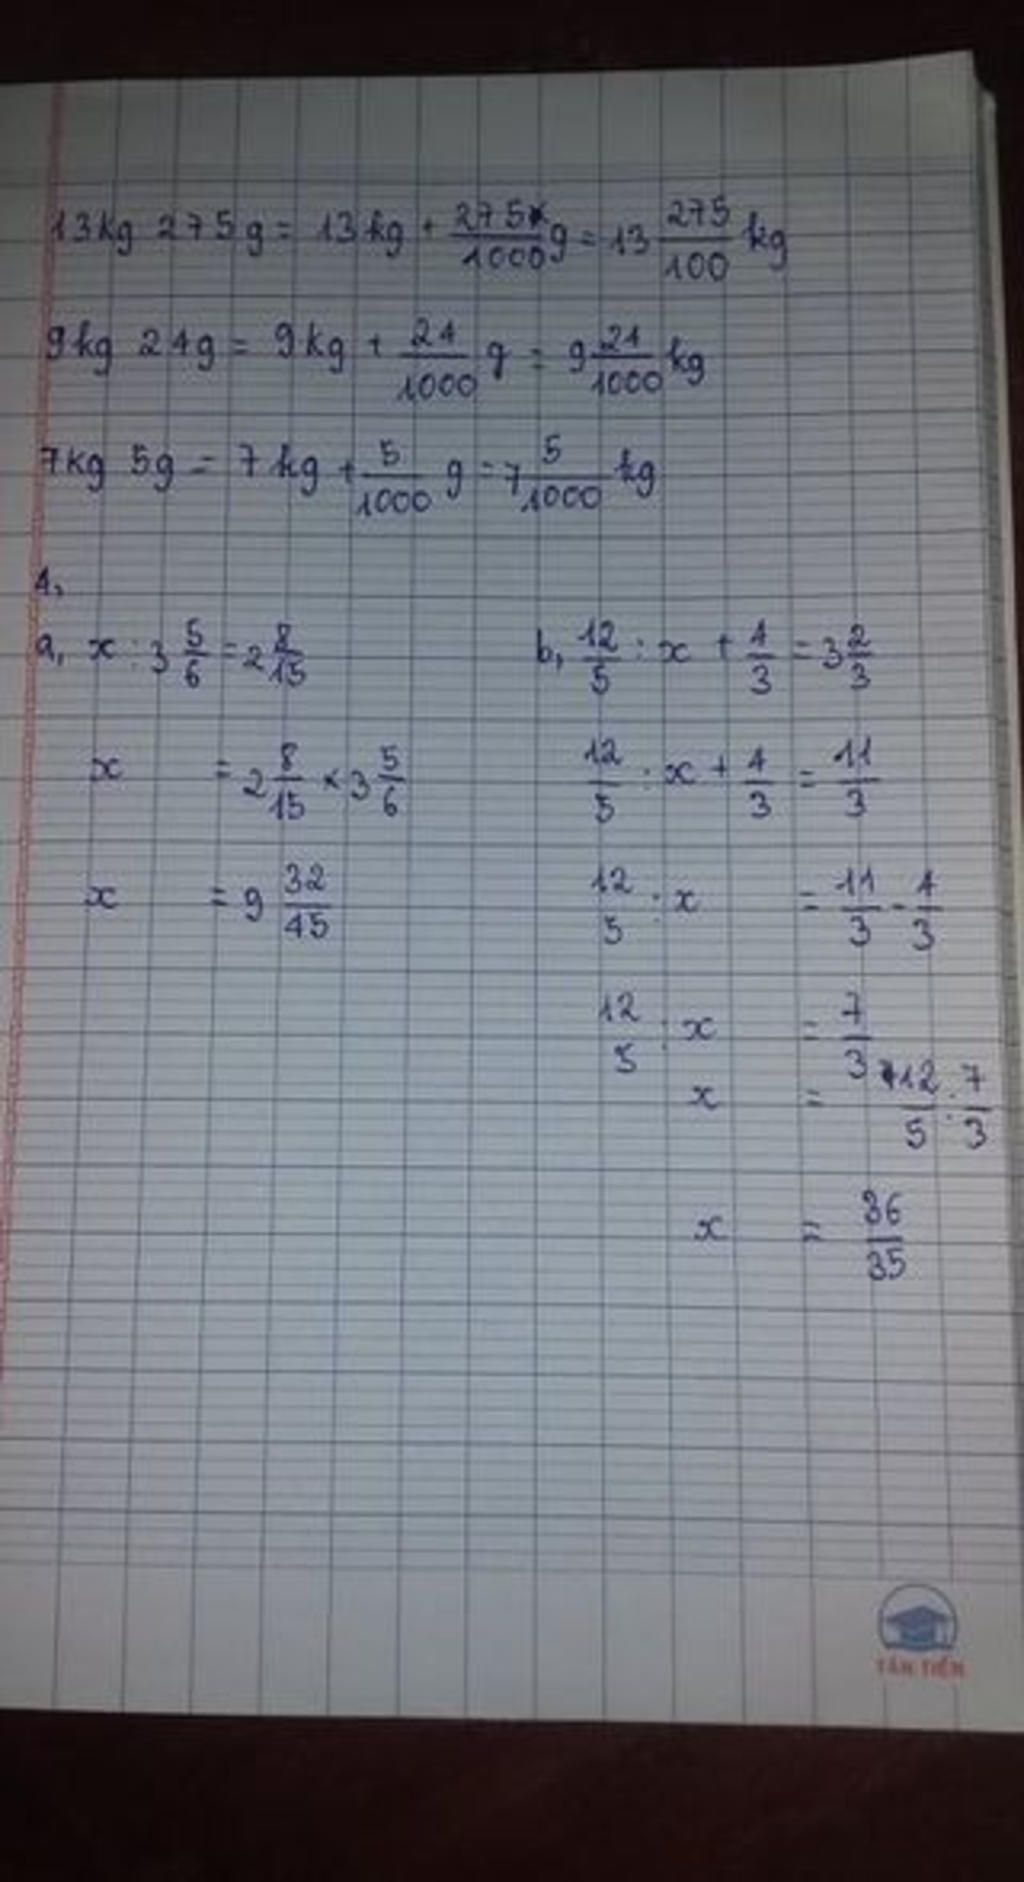 13kg 275g = 13kg + 275/1000 g = 13 275/100 kg
9kg 24g = 9kg + 24/1000 g = 9 24/1000 kg
7kg 5g = 7kg + 5/1000 g = 7 5/1000 kg
4,
a, x : 3 5/6 = 2 8/15
x = 2 8/15 × 3 5/6
x = 9 32/45
b, 12/5 : x + 4/3 = 3 2/3
12/5 : x + 4/3 = 11/3
12/5 : x = 11/3 - 4/3
12/5 : x = 7/3
x = 12/5 : 7/3
x = 36/35
TÂN TIẾN